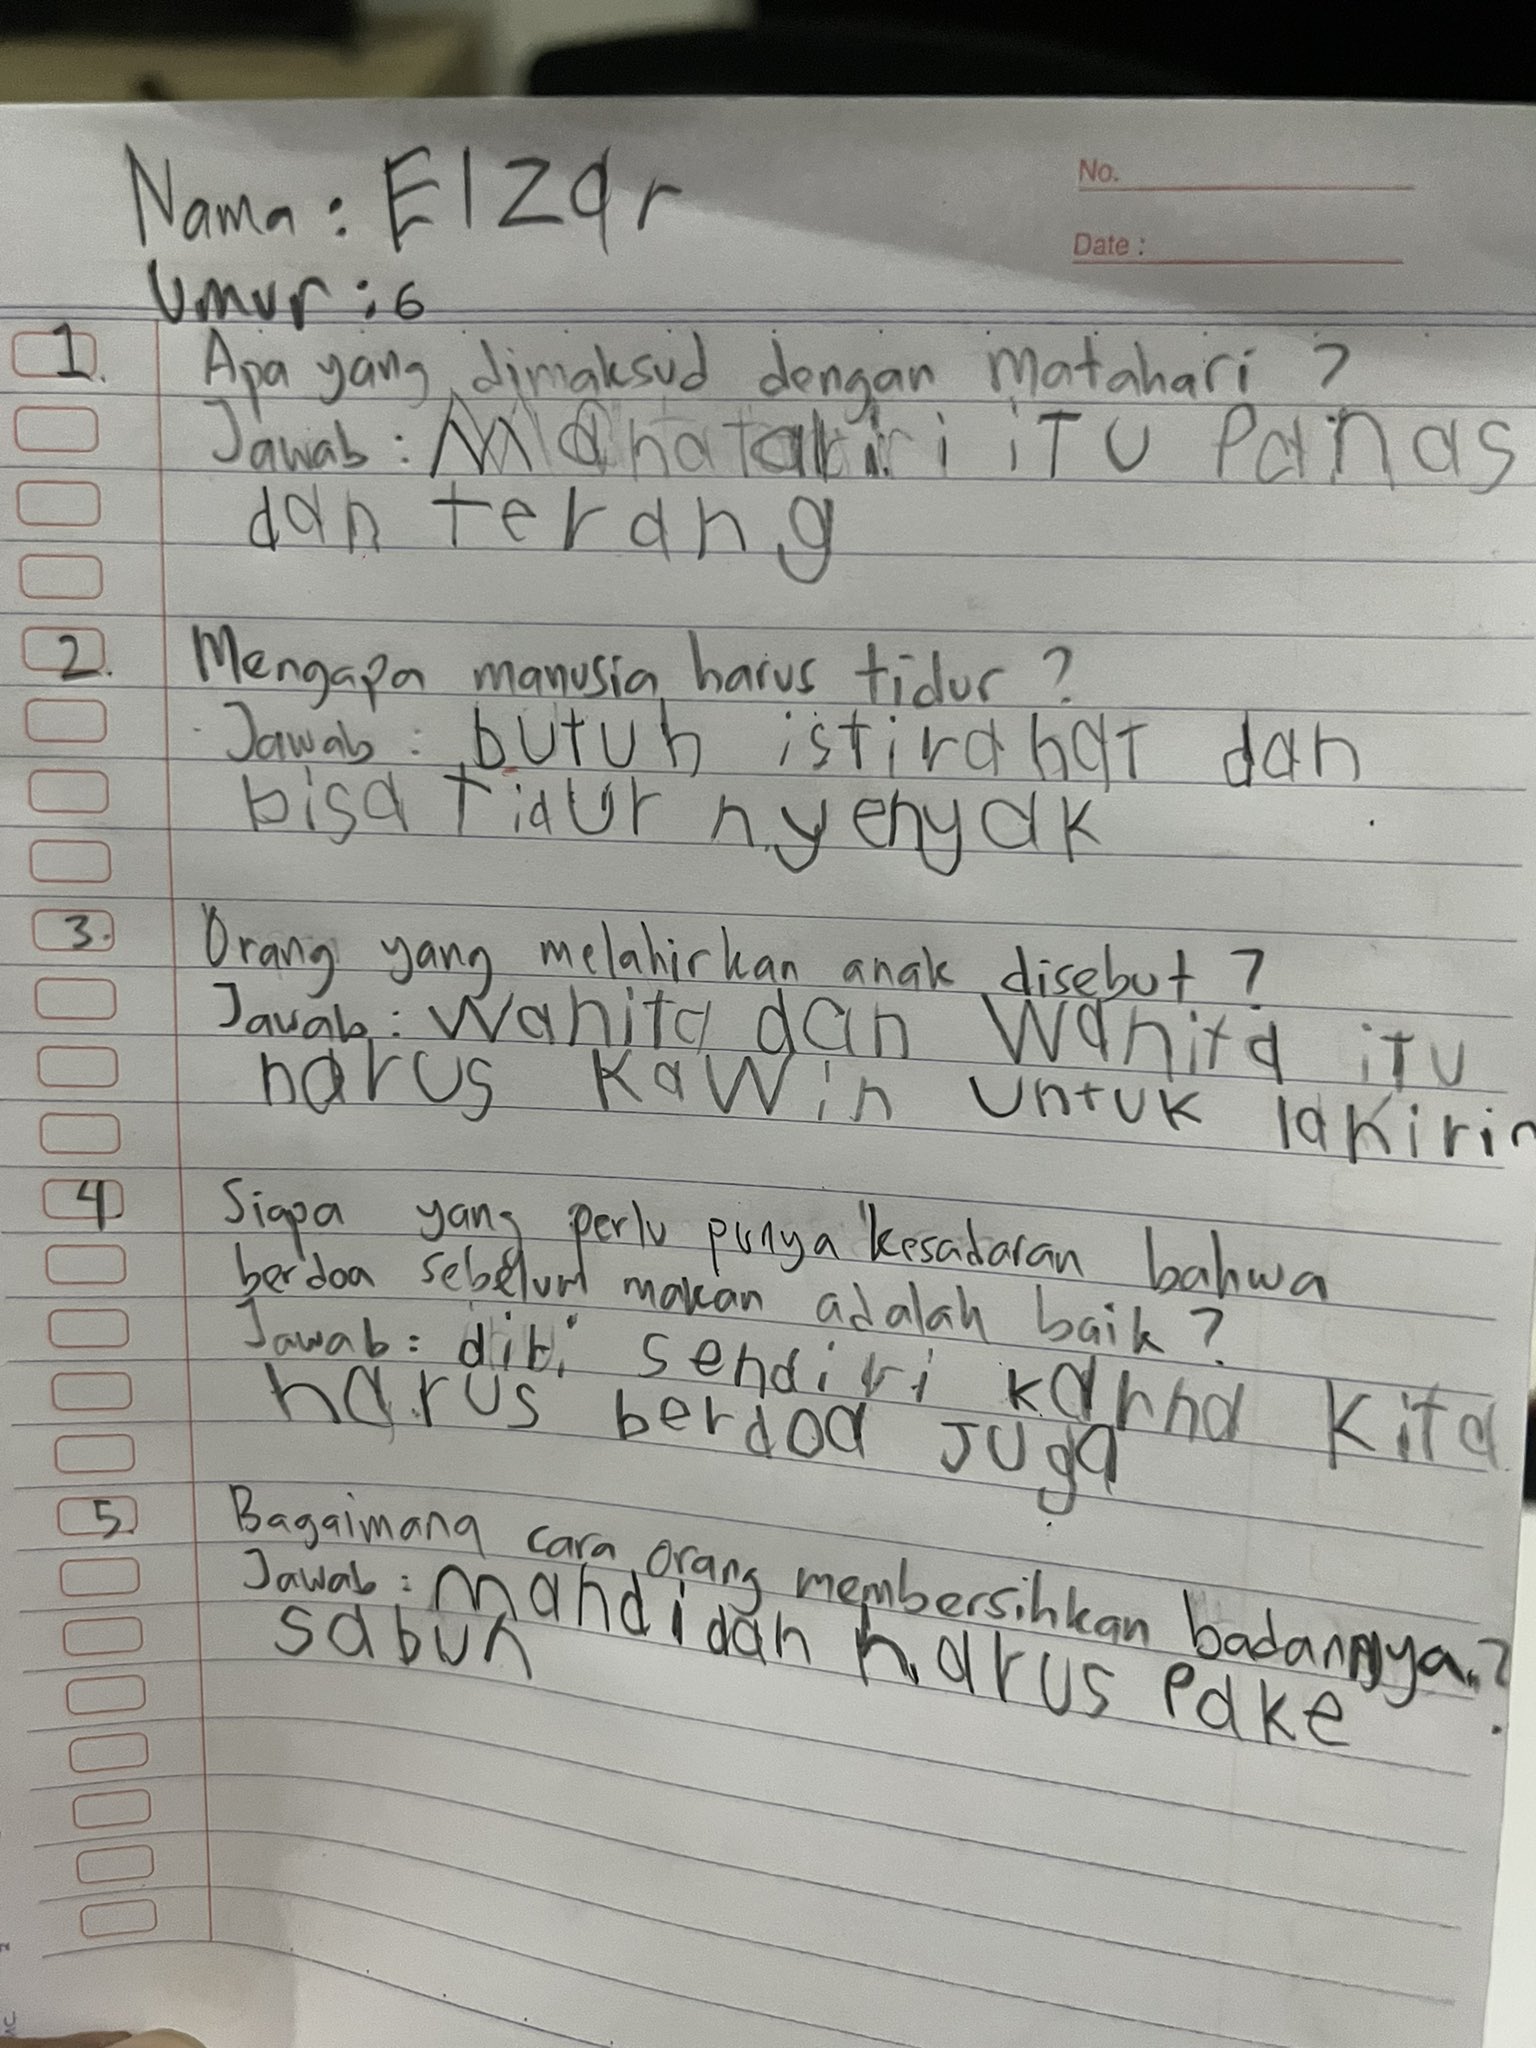 No.
Date :
Nama : Elzar
Umur : 6
1. Apa yang dimaksud dengan matahari ?
Jawab : iTU Panas
dan terang
2. Mengapa manusia harus tidur ?
Jawab : butuh istirahat dan
bisa tidur nyenyak
3. Orang yang melahirkan anak disebut ?
Jawab : Wanita dan Wanita iTU
harus Kawin untuk lahirin
4. Siapa yang perlu punya kesadaran bahwa
berdoa sebelum makan adalah baik ?
Jawab : diri sendiri karna Kita
harus berdoa Juga
5. Bagaimana cara orang membersihkan badannya ?
Jawab : mandi dan harus Pake
sabun